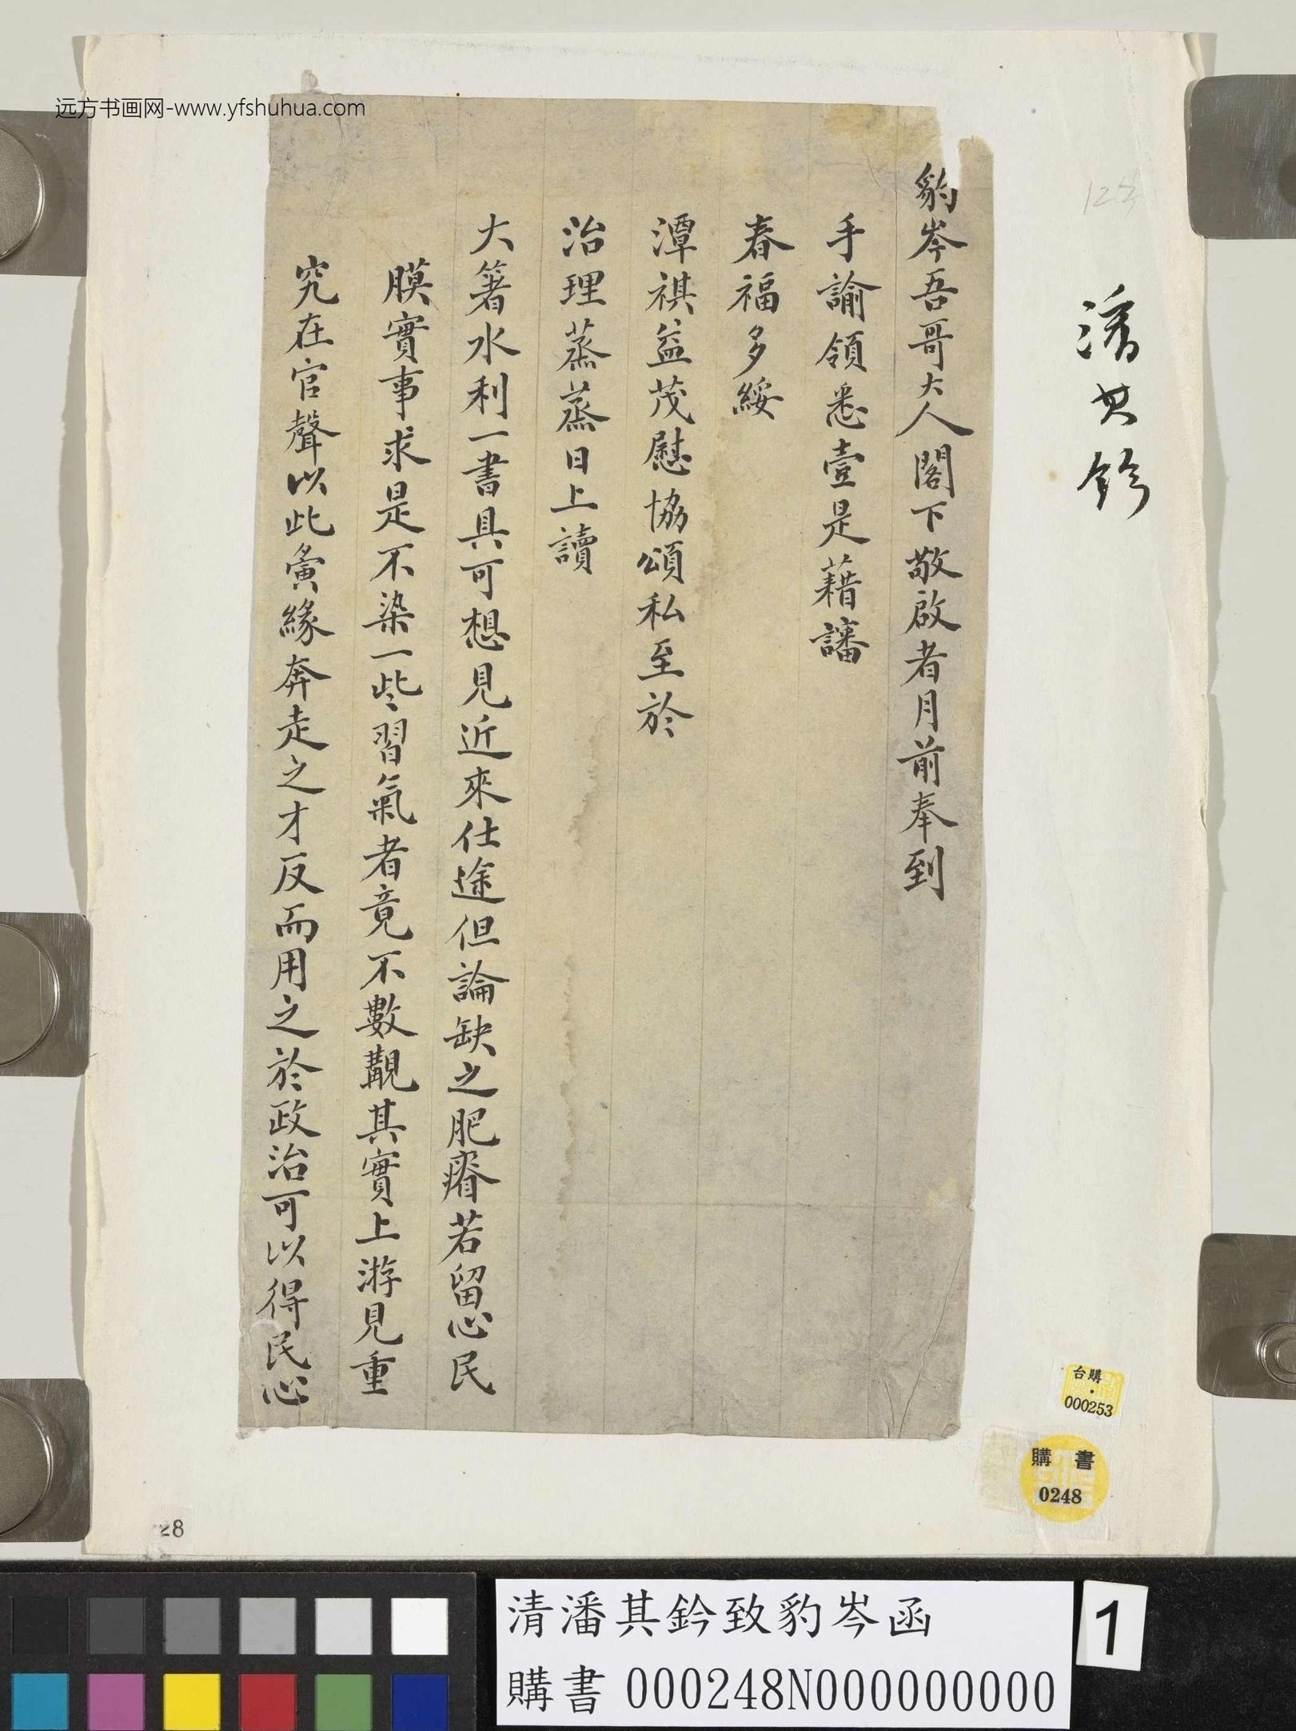 远方书画网-www.yfshuhua.com
潘其鈐
豹岑吾哥大人閣下敬啟者月前奉到
手諭領悉壹是藉讅
春福多綏
潭祺益茂慰協頌私至於
治理蒸蒸日上讀
大箸水利一書具可想見近來仕途但論缺之肥瘠若留心民
膜實事求是不染一些習氣者竟不數觏其實上游見重
究在官聲以此夤緣奔走之才反而用之於政治可以得民心
台購
000253
購書
0248
28
清潘其鈐致豹岑函
購書 000248N000000000
1